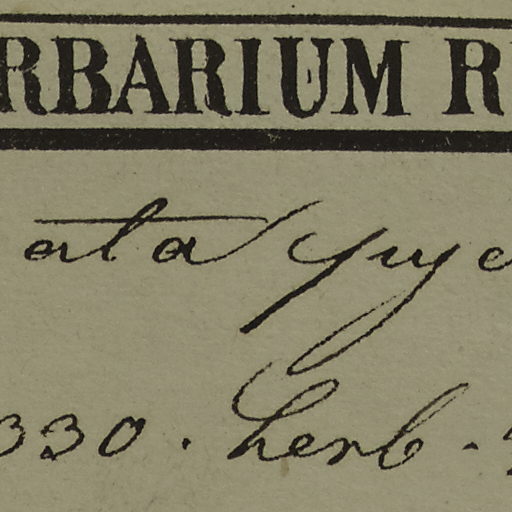 RBARIUM R
ata
330. herb.